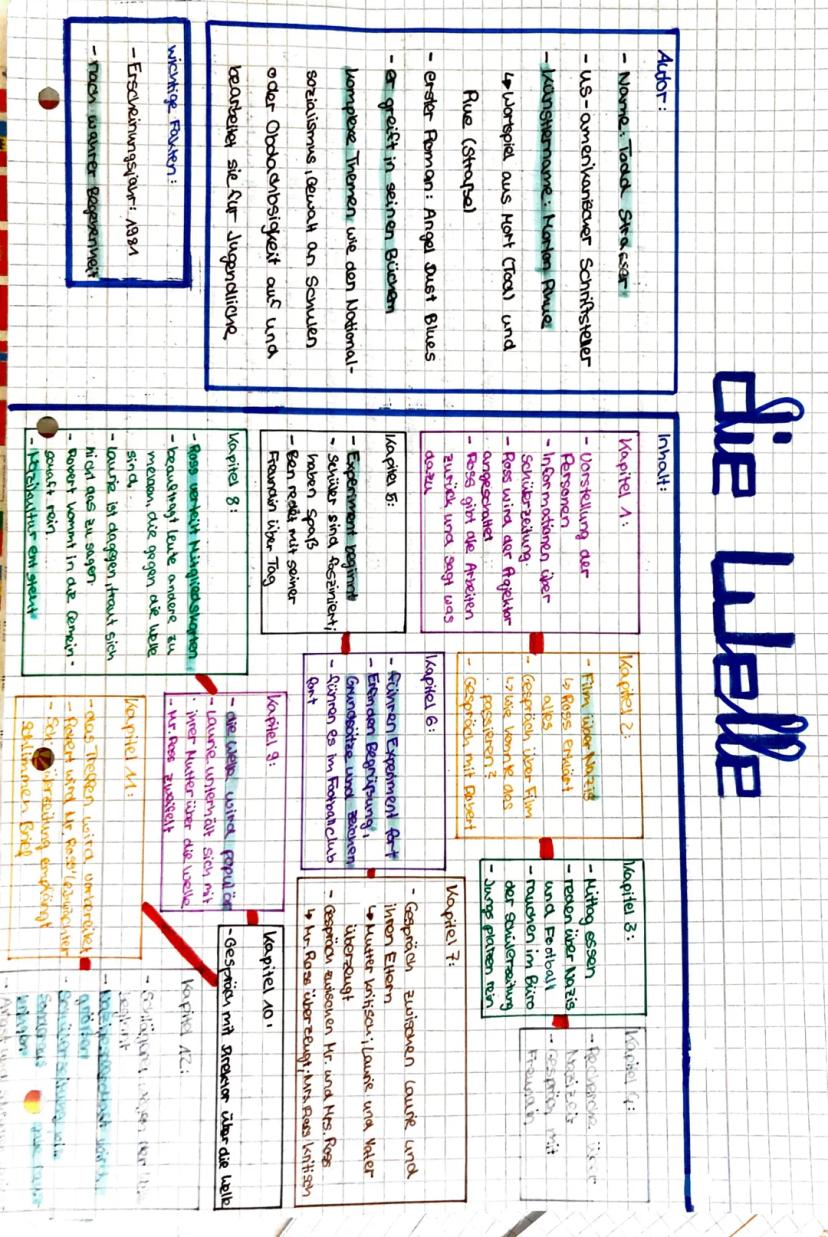 die Welle
Autor:
- Name: Todd Strasser
- US-amerikanischer Schriftsteller
- Künstlername: Morton Rhue
↳ Wortspiel aus Mort (Tod) und
Rue (Straße)
- erster Roman: Angel Dust Blues
- er greift in seinen Büchern
komplexe Themen wie den National-
sozialismus, Gewalt an Schulen
oder Obdachlosigkeit auf und
bearbeitet sie für Jugendliche
wichtige Fakten:
- Erscheinungsjahr: 1981
- nach wahrer Begebenheit
Inhalt:
Kapitel 1:
- Vorstellung der
Personen
- Informationen über
Schülerzeitung
- Ross wird der Projektor
angeschaltet
- Ross gibt die Arbeiten
zurück und sagt was
dazu
Kapitel 2:
- Film über Nazis
↳ Ross erklärt
alles
- Gespräch über Film
↳ wie konnte das
passieren?
- Gespräch mit Robert
Kapitel 3:
- Mittag essen
- reden über Nazis
und Football
- rauchen im Büro
der Schülerzeitung
- Jungs platzen rein
Kapitel 4:
- Recherche über
Nazizeit
- Gespräch mit
Freundin
Kapitel 5:
- Experiment beginnt
- Schüler sind fasziniert,
haben Spaß
- Ben redet mit seiner
Freundin über Tag
Kapitel 6:
- führen Experiment fort
- Erfinden Begrüßung,
Grundsätze und Zeichen
- führen es im Footballclub
fort
Kapitel 7:
- Gespräch zwischen Laurie und
ihren Eltern
↳ Mutter kritisch; Laurie und Vater
überzeugt
- Gespräch zwischen Mr. und Mrs. Ross
↳ Mr. Ross überzeugt; Mrs. Ross kritisch
Kapitel 8:
- Ross verteilt Mitgliedskarten
- beauftragt Leute andere zu
melden, die gegen die Welle
sind
- Laurie ist dagegen, traut sich
nicht das zu sagen
- Robert kommt in die Gemein-
schaft rein
- Nazikultur entsteht
Kapitel 9:
- die Welle wird populär
- Laurie unterhält sich mit
ihrer Mutter über die Welle
- Mr. Ross zweifelt
Kapitel 10:
- Gespräch mit Direktor über die Welle
Kapitel 11:
- das Treffen wird vorbereitet
- Robert wird Mr. Ross' Leibwächter
- Schülerzeitung empfängt
schlimmen Brief
Kapitel 12:
beginnt
größer